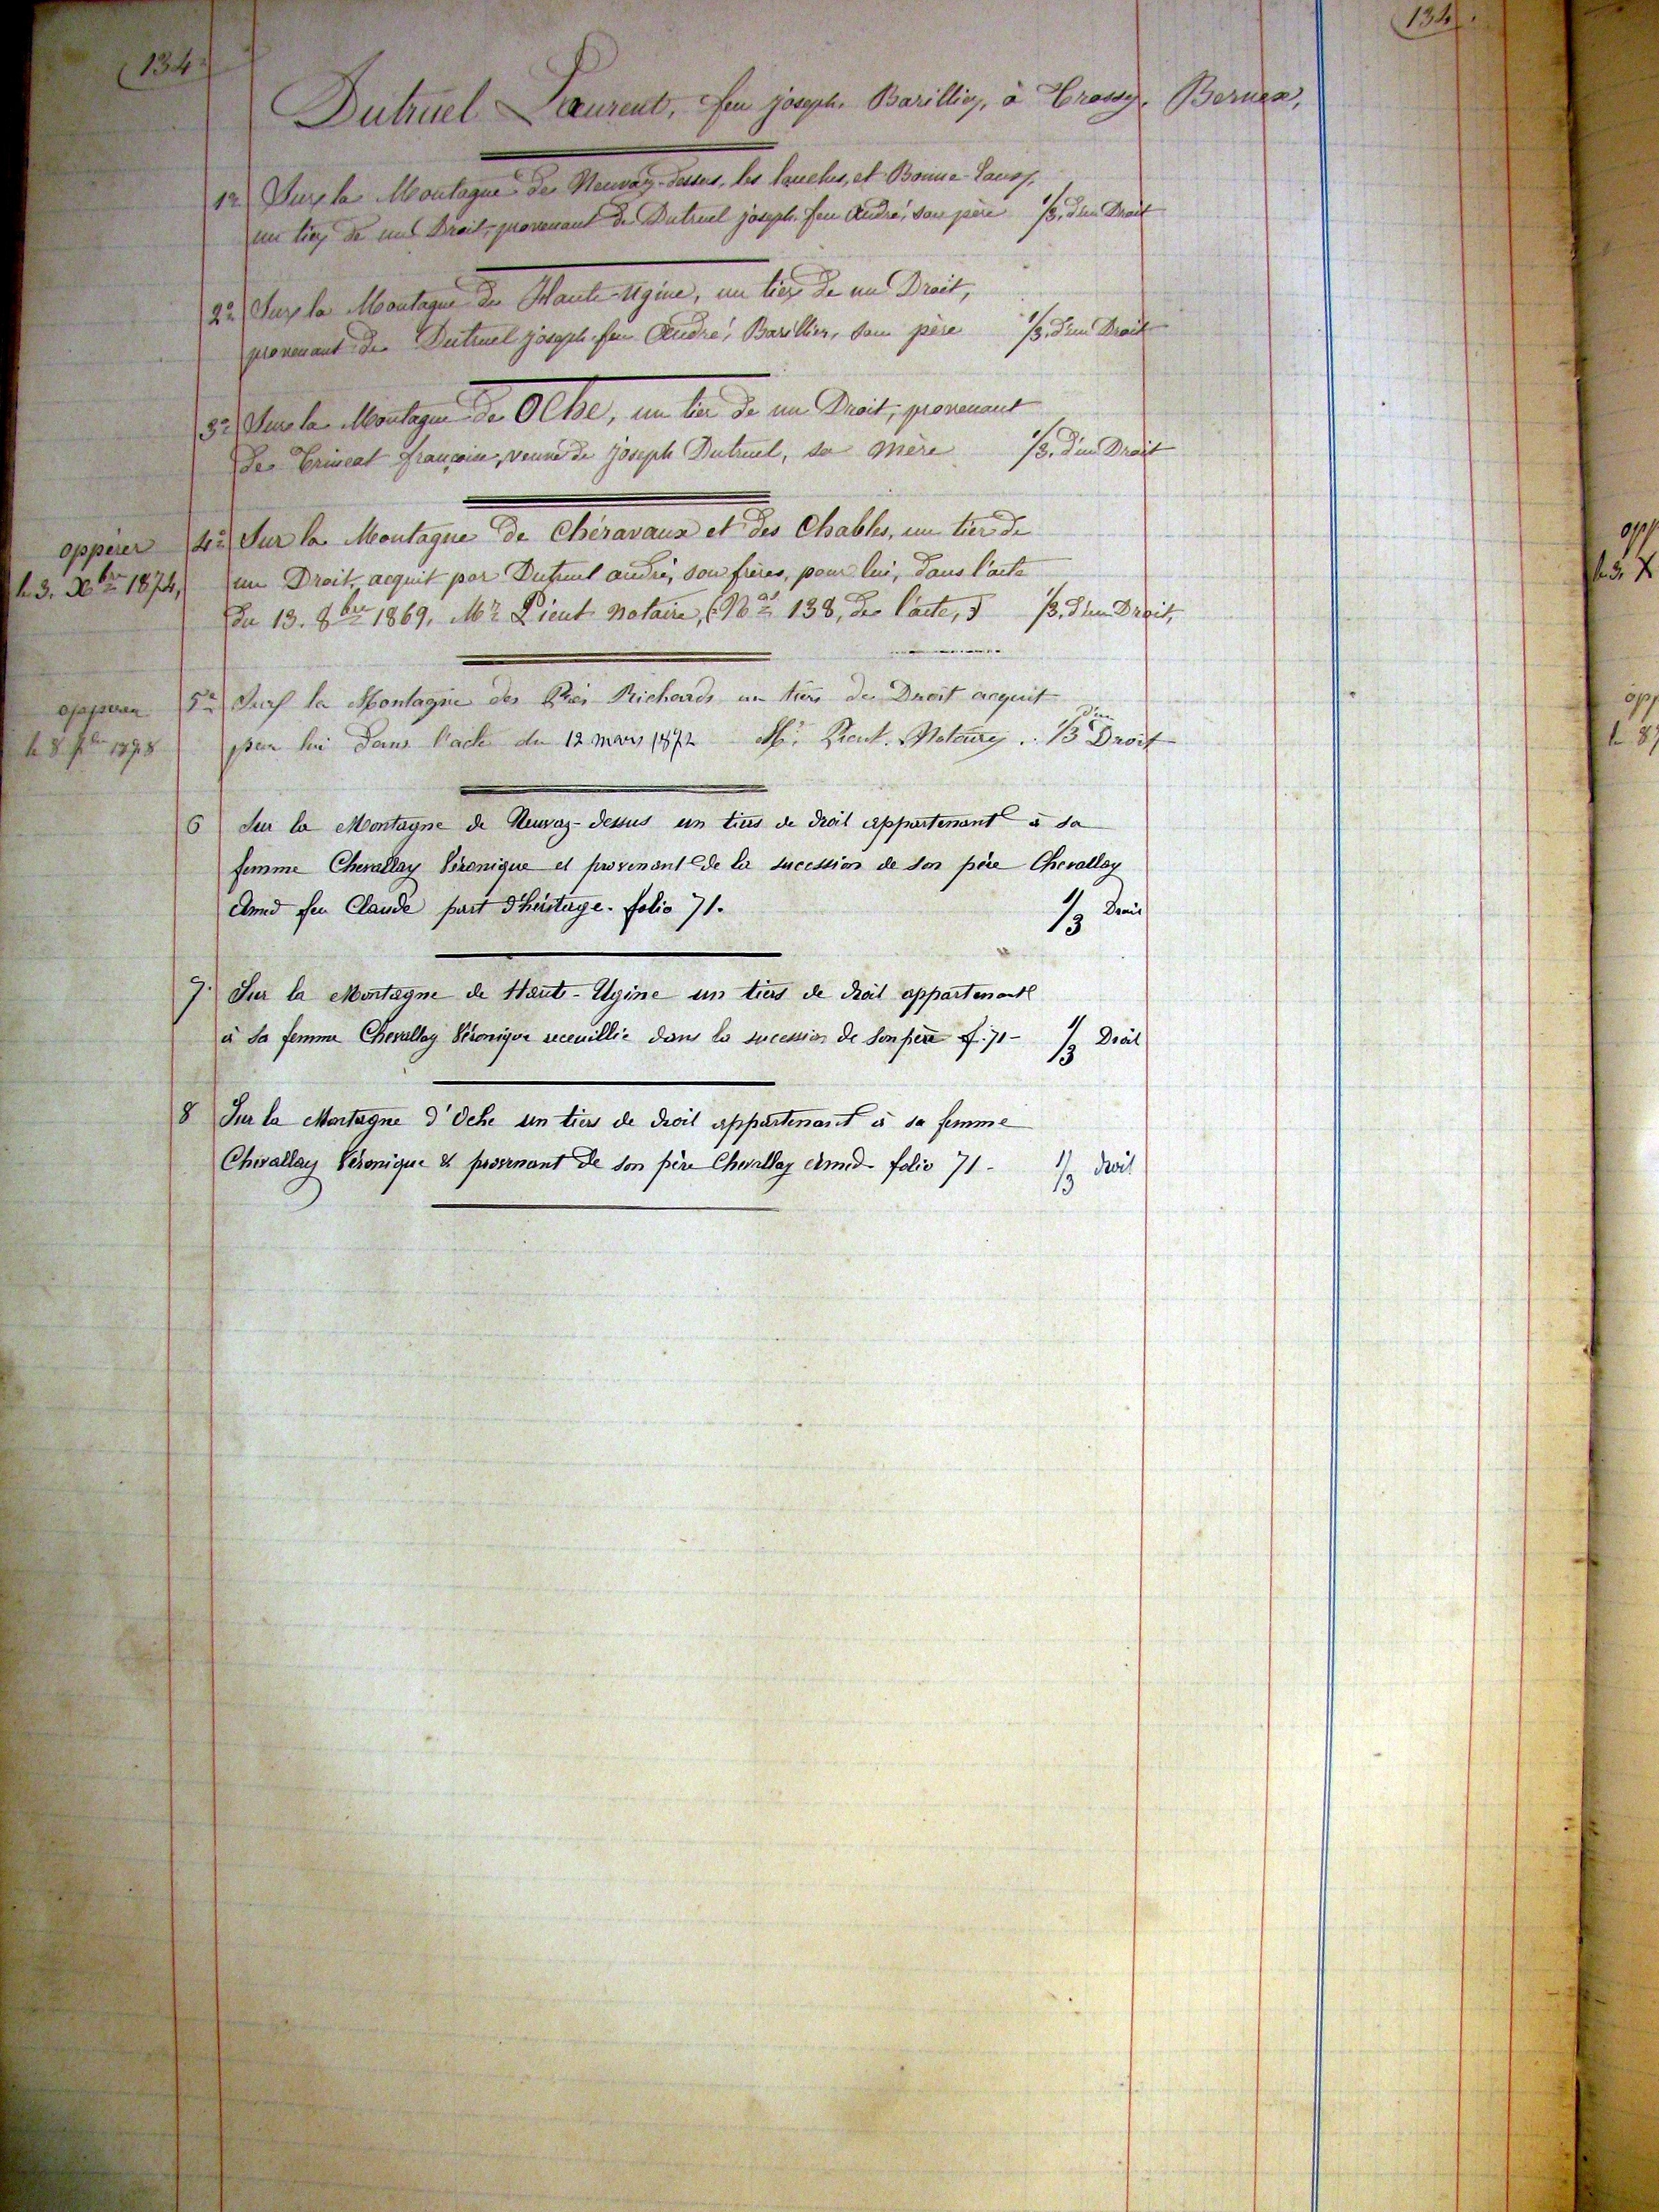 134
134
Dutruel Laurent, feu joseph. Barillier, à Trossy. Bernex,
1º Sur la Montagne de Neuvaz-dessus, les
un tier de un Droit, provenant de Dutruel joseph feu André, son père 1/3, d'un Droit
2º Sur la Montagne de Haute-Ugine, un tier de un Droit,
provenant de Dutruel joseph feu André, Barillier, son père 1/3, d'un Droit
3º Sur la Montagne de Oche, un tier de un Droit, provenant
de françoise, veuve de joseph Dutruel, sa mère 1/3, d'un Droit
oppérer 4º Sur la Montagne de Chéravaux et des Chables, un tier de
le 3. Xbre 1874, un Droit, acquit par Dutruel andré, son frères, pour lui, dans l'acte
du 13. 8bre 1869, Mr Pient notaire, (Nos 138, de l'acte,) 1/3, d'un Droit,
5º Sur la Montagne des Prés Richards un tiers de Droit acquit
par lui dans l'acte du 12 mars 1872 Mr. Pient. Notaire. 1/3 d'un Droit
6 Sur la Montagne de Neuvaz-dessus un tiers de droit appartenant à sa
femme Chevallay Véronique et provenant de la sucession de son père Chevallay
Amed feu Claude part d'héritage. folio 71. 1/3 Droit
7. Sur la Montagne de Haute-Ugine un tiers de droit appartenant
à sa femme Chevallay Véronique receuillie dans la sucession de son père f. 71- 1/3 Droit
8 Sur la Montagne d'Oche un tiers de droit appartenant à sa femme
Chevallay Véronique & provenant de son père Chevallay Amed folio 71- 1/3 droit